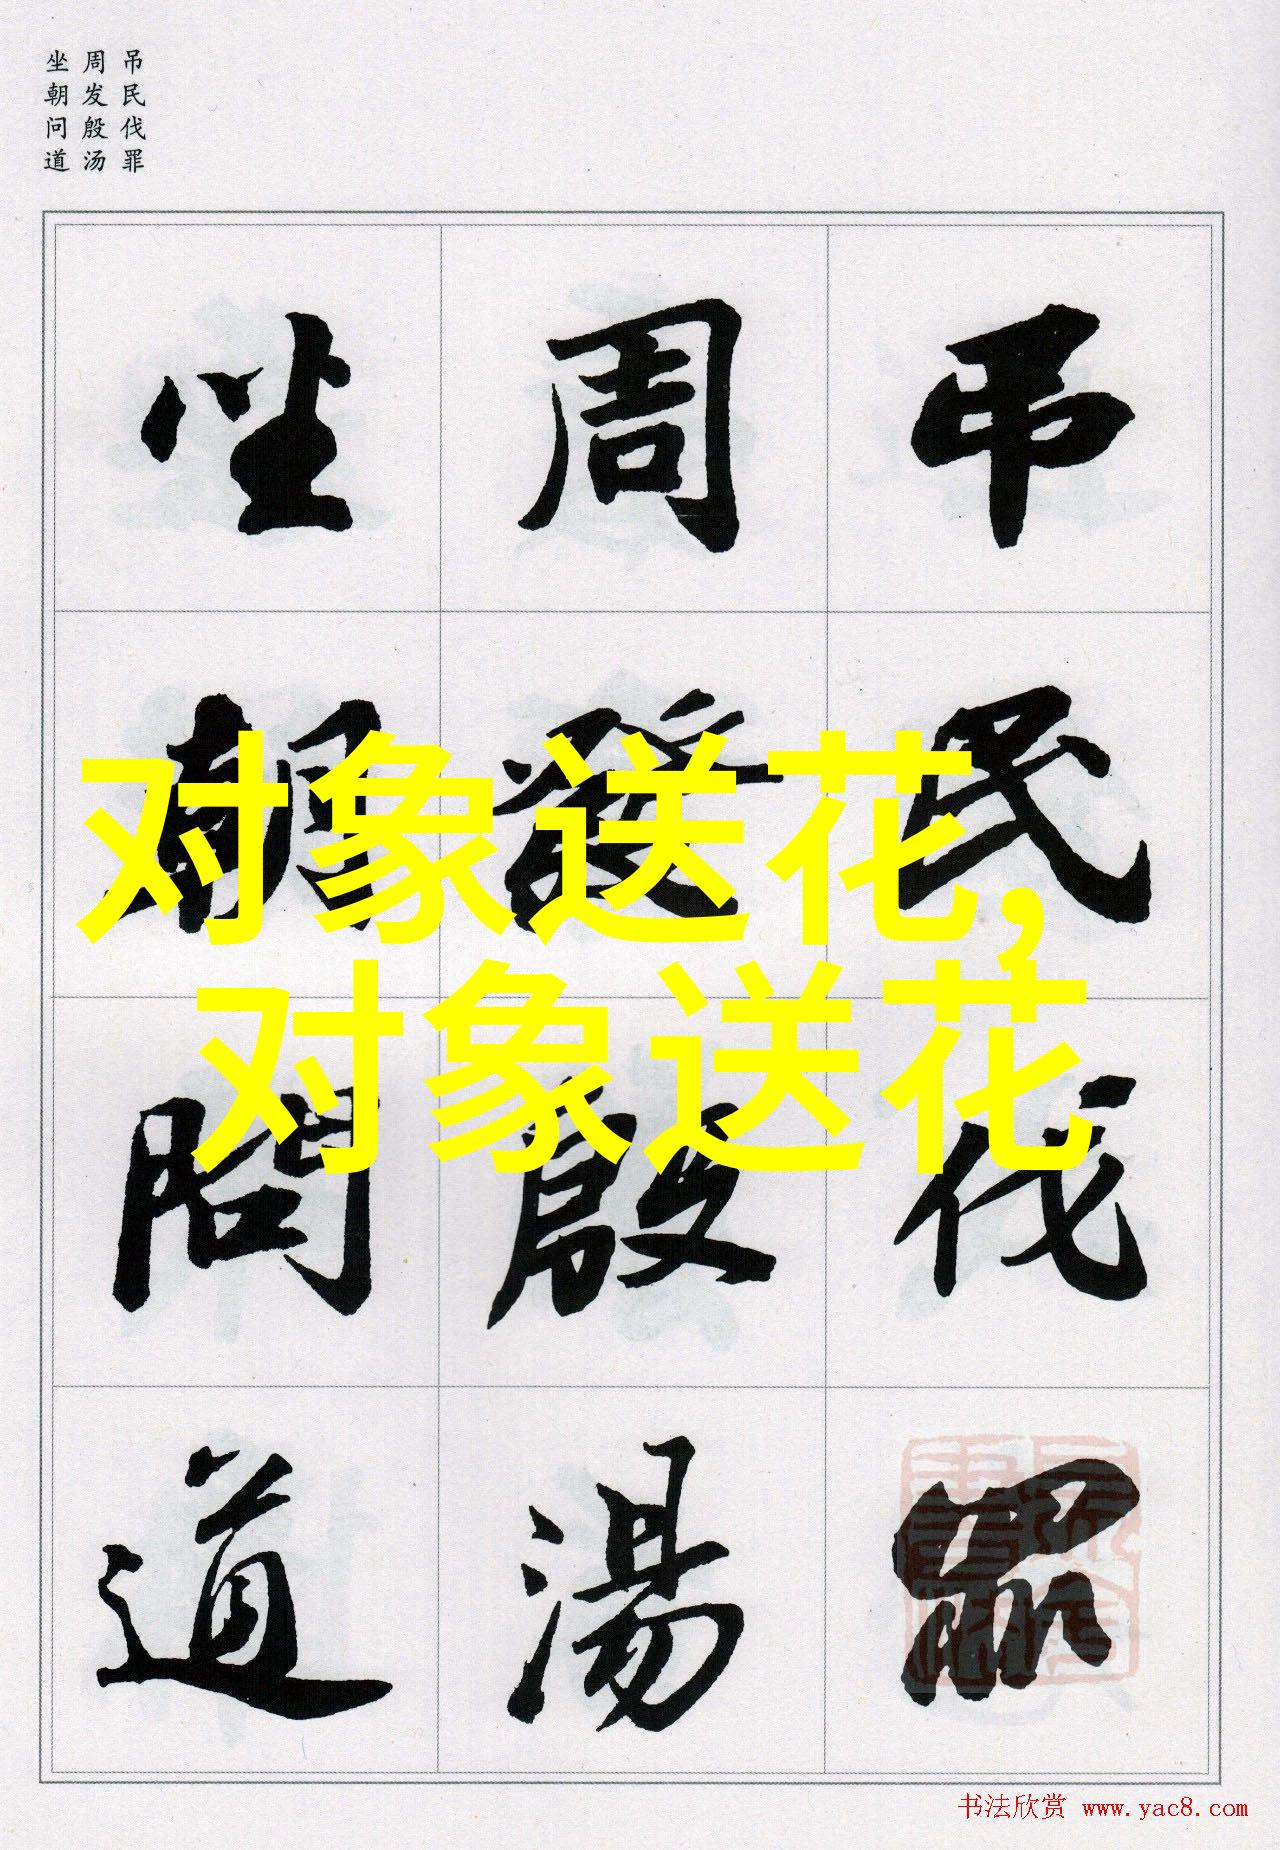 吊民伐罪
周发殷汤
坐朝问道
吊民伐罪
周發殷湯
坐朝問道
对象送花，
对象送花
书法欣赏 www.yac8.com